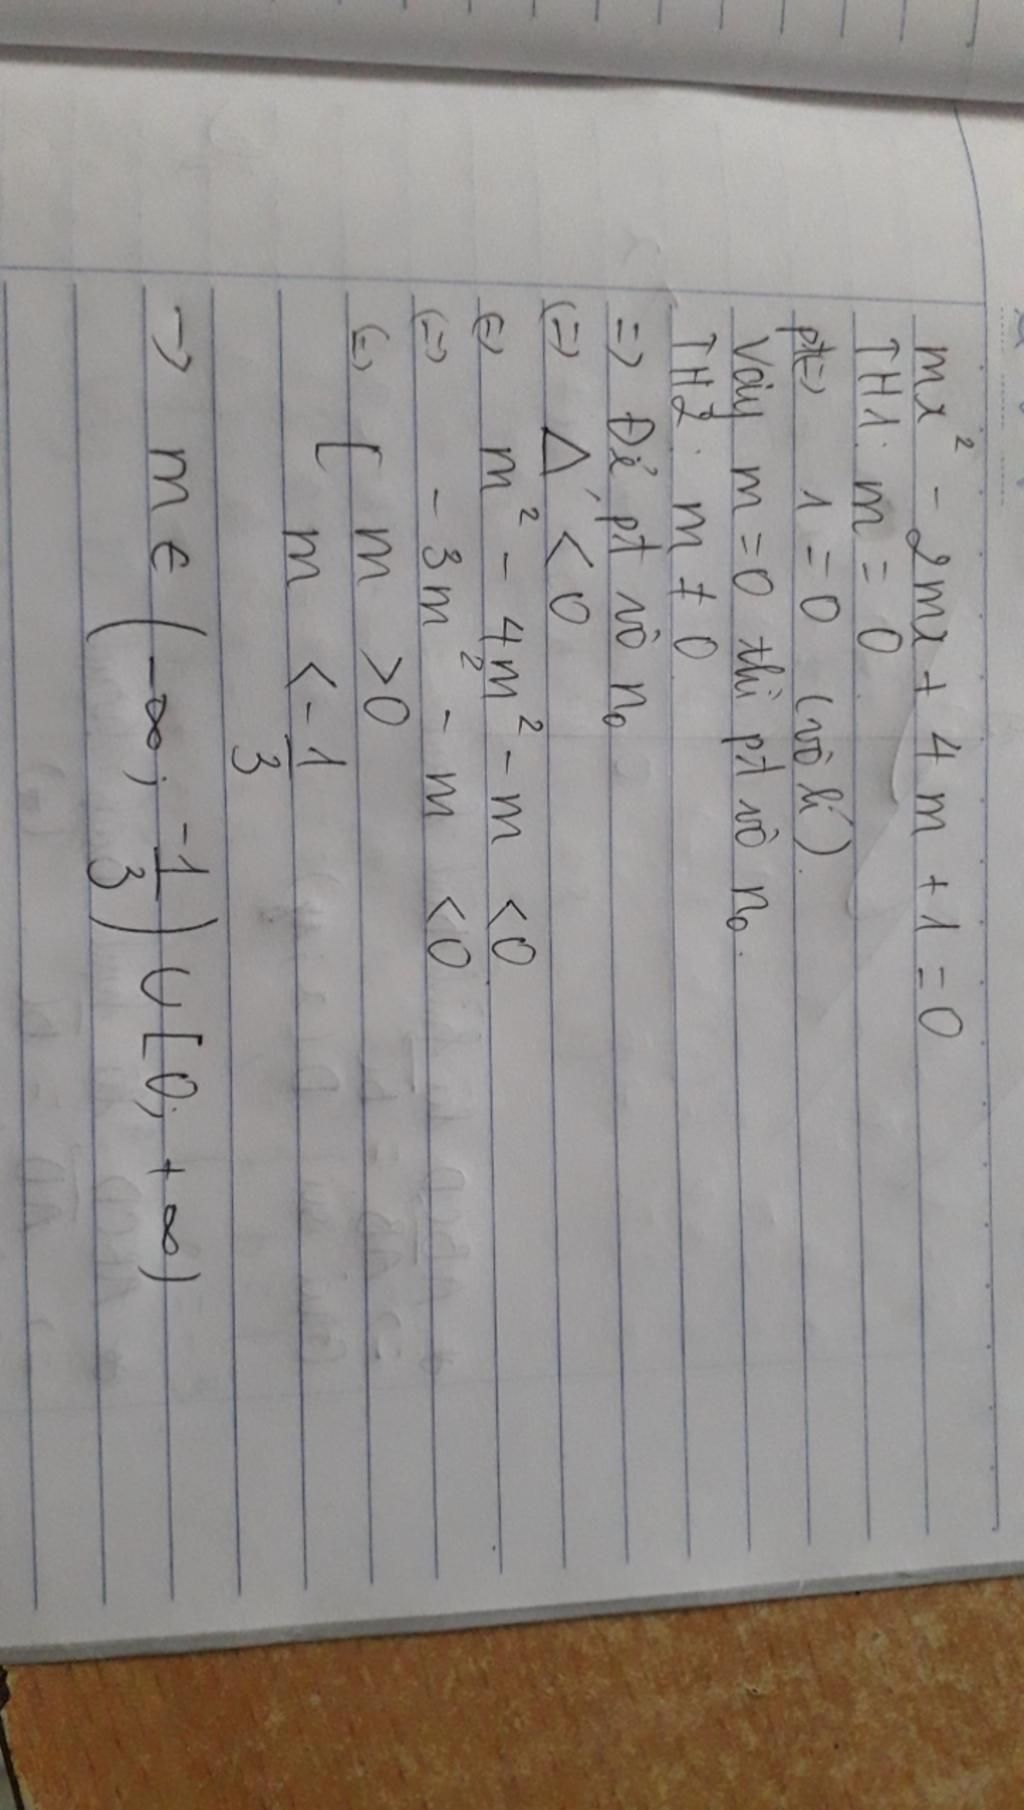 mx² - 2mx + 4m + 1 = 0
TH1: m = 0
pt⇔ 1 = 0 (vô lí).
Vậy m = 0 thì pt vô n₀.
TH2: m ≠ 0
=> Để pt vô n₀
(=) Δ' < 0
(=) m² - 4m² - m < 0
(=) - 3m² - m < 0
(=) [ m > 0
m < -1/3
→ m ∈ (-∞; -1/3) ∪ [0; +∞)